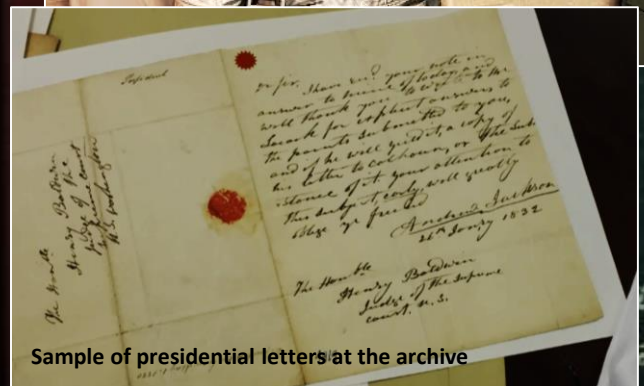 President
Dr Sir, I have recd your note in
answer to mine of today, and
will thank you to write to Mr.
for explicit answers to
the points submitted to you,
and if he will yield it, a copy of
his letter to Calhoun, or the sub
stance of it. your attention to
this subject early, will greatly
oblige yr friend
Andrew Jackson
26th Jany 1832
The Honble
Henry Baldwin
Judge of the Supreme
court. U.S.
The Honble
Henry Baldwin
Judge of the
Supreme court
Sample of presidential letters at the archive